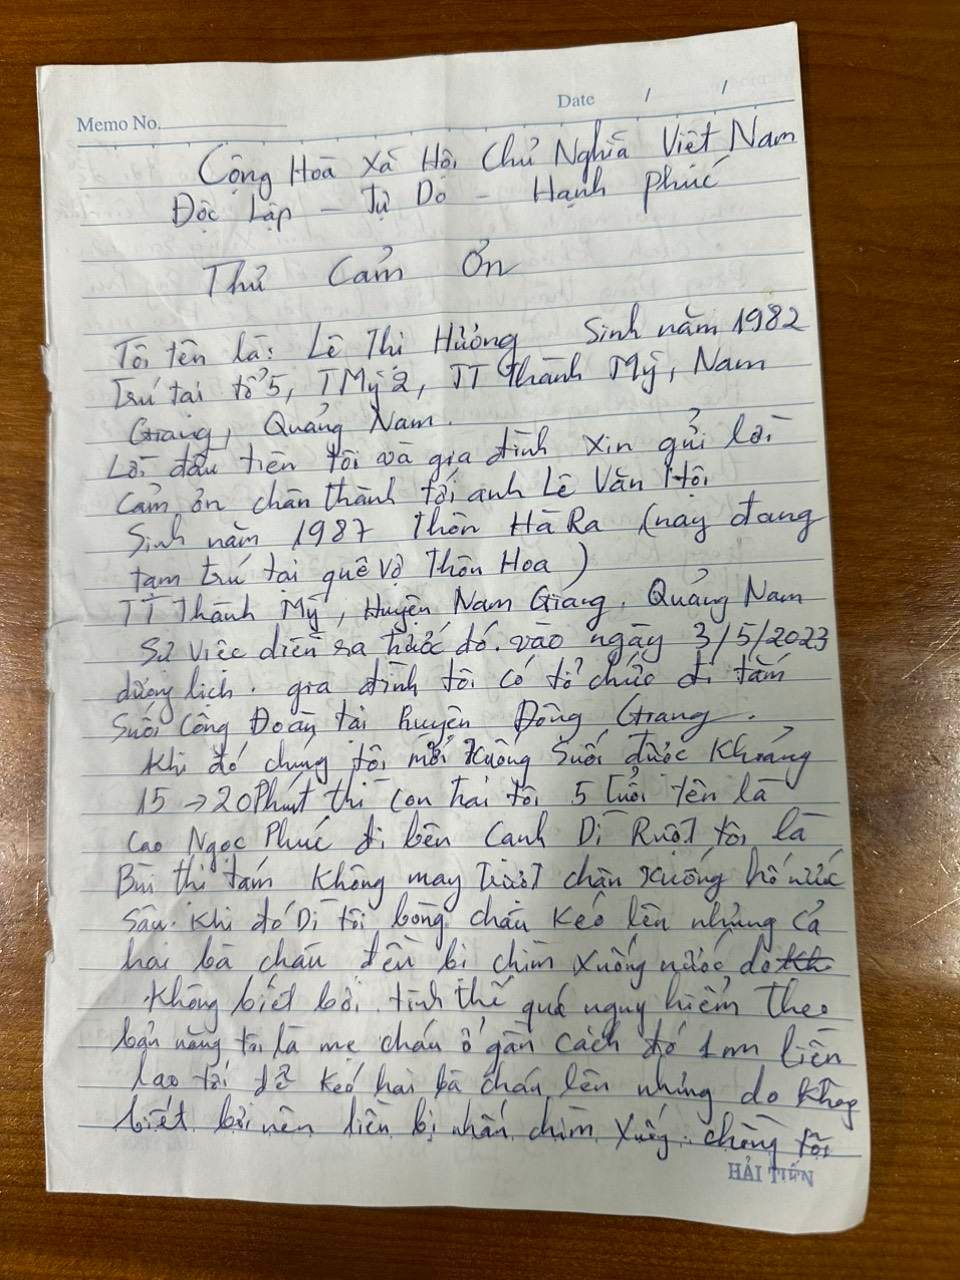 Memo No.
Date / /
Cộng Hoà Xã Hội Chủ Nghĩa Việt Nam
Độc Lập - Tự Do - Hạnh Phúc
Thư Cảm Ơn
Tôi tên là: Lê Thị Hường Sinh năm 1982
Trú tại tổ 5, TMỹ 2, TT Thành Mỹ, Nam
Giang, Quảng Nam.
Lời đầu tiên tôi và gia đình xin gửi lời
Cảm ơn chân thành tới anh Lê Văn Hội
Sinh năm 1987 Thôn Hà Ra (nay đang
tạm trú tại quê vợ Thôn Hoa)
TT Thành Mỹ, Huyện Nam Giang, Quảng Nam
Sự việc diễn sa trước đó. vào ngày 3/5/2023
dương lịch. gia đình tôi có tổ chức đi tắm
Suối Công Đoàn tại huyện Đông Giang.
Khi đó chúng tôi mới xuống Suối được Khoảng
15 → 20 Phút thì con trai tôi 5 tuổi tên là
Cao Ngọc Phúc đi bên Cạnh Dì Ruột tôi là
Bùi thị tám Không may trượt chân xuống hố nước
sâu. Khi đó Dì tôi bồng cháu Kéo lên nhưng cả
hai bà cháu đều bị chìm xuống nước do
Không biết bơi. tình thế quá nguy hiểm theo
bản năng tôi là mẹ cháu ở gần cách đó 1m liền
lao tới để kéo hai bà cháu lên nhưng do không
biết bơi nên liền bị nhấn chìm xuống. chồng tôi
HẢI TIẾN